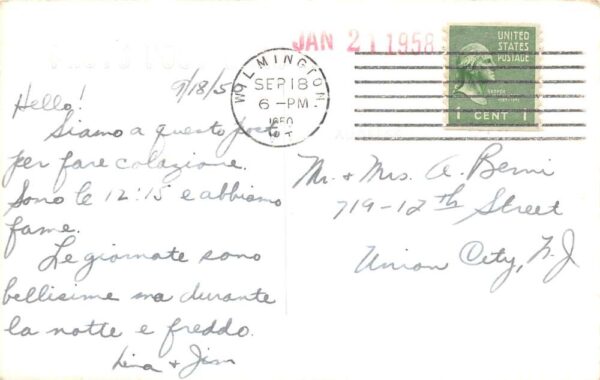 JAN 21 1958
WILMINGTON
SEP 18
6 - PM
1950
VT.
UNITED
STATES
POSTAGE
1 CENT 1
9/18/5
Hello!
Siamo a questo post
per fare colazione.
Sono le 12:15 e abbiamo
fame.
Le giornate sono
bellisime ma durante
la notte e freddo.
Lina + Jim
Mr. + Mrs. A. Berni
719-12th Street
Union City, N.J